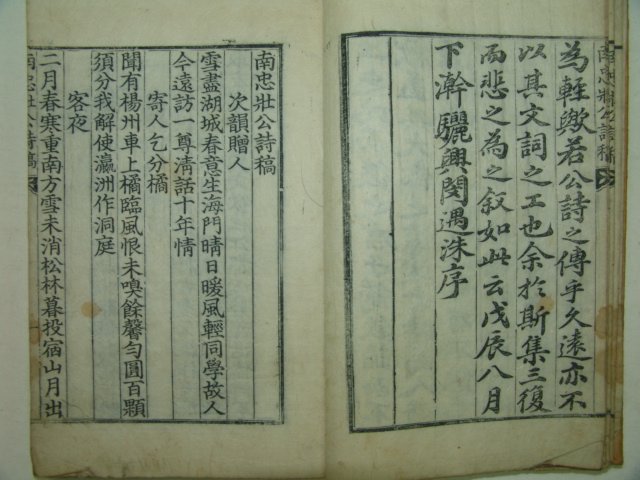 南忠壯公詩稿
為輊歟若公詩之傳乎久遠亦不
以其文詞之工也余於斯集三復
而悲之為之叙如此云戊辰八月
下澣驪興閔遇洙序
南忠壯公詩稿
次韻贈人
雪盡湖城春意生海門晴日暖風輕同學故人
今遠訪一尊淸話十年情
寄人乞分橘
聞有楊州車上橘臨風恨未嗅餘馨勻圓百顆
須分我解使瀛洲作洞庭
客夜
二月春寒重南方雪未消松林暮投宿山月出
南忠壯公詩稿
一